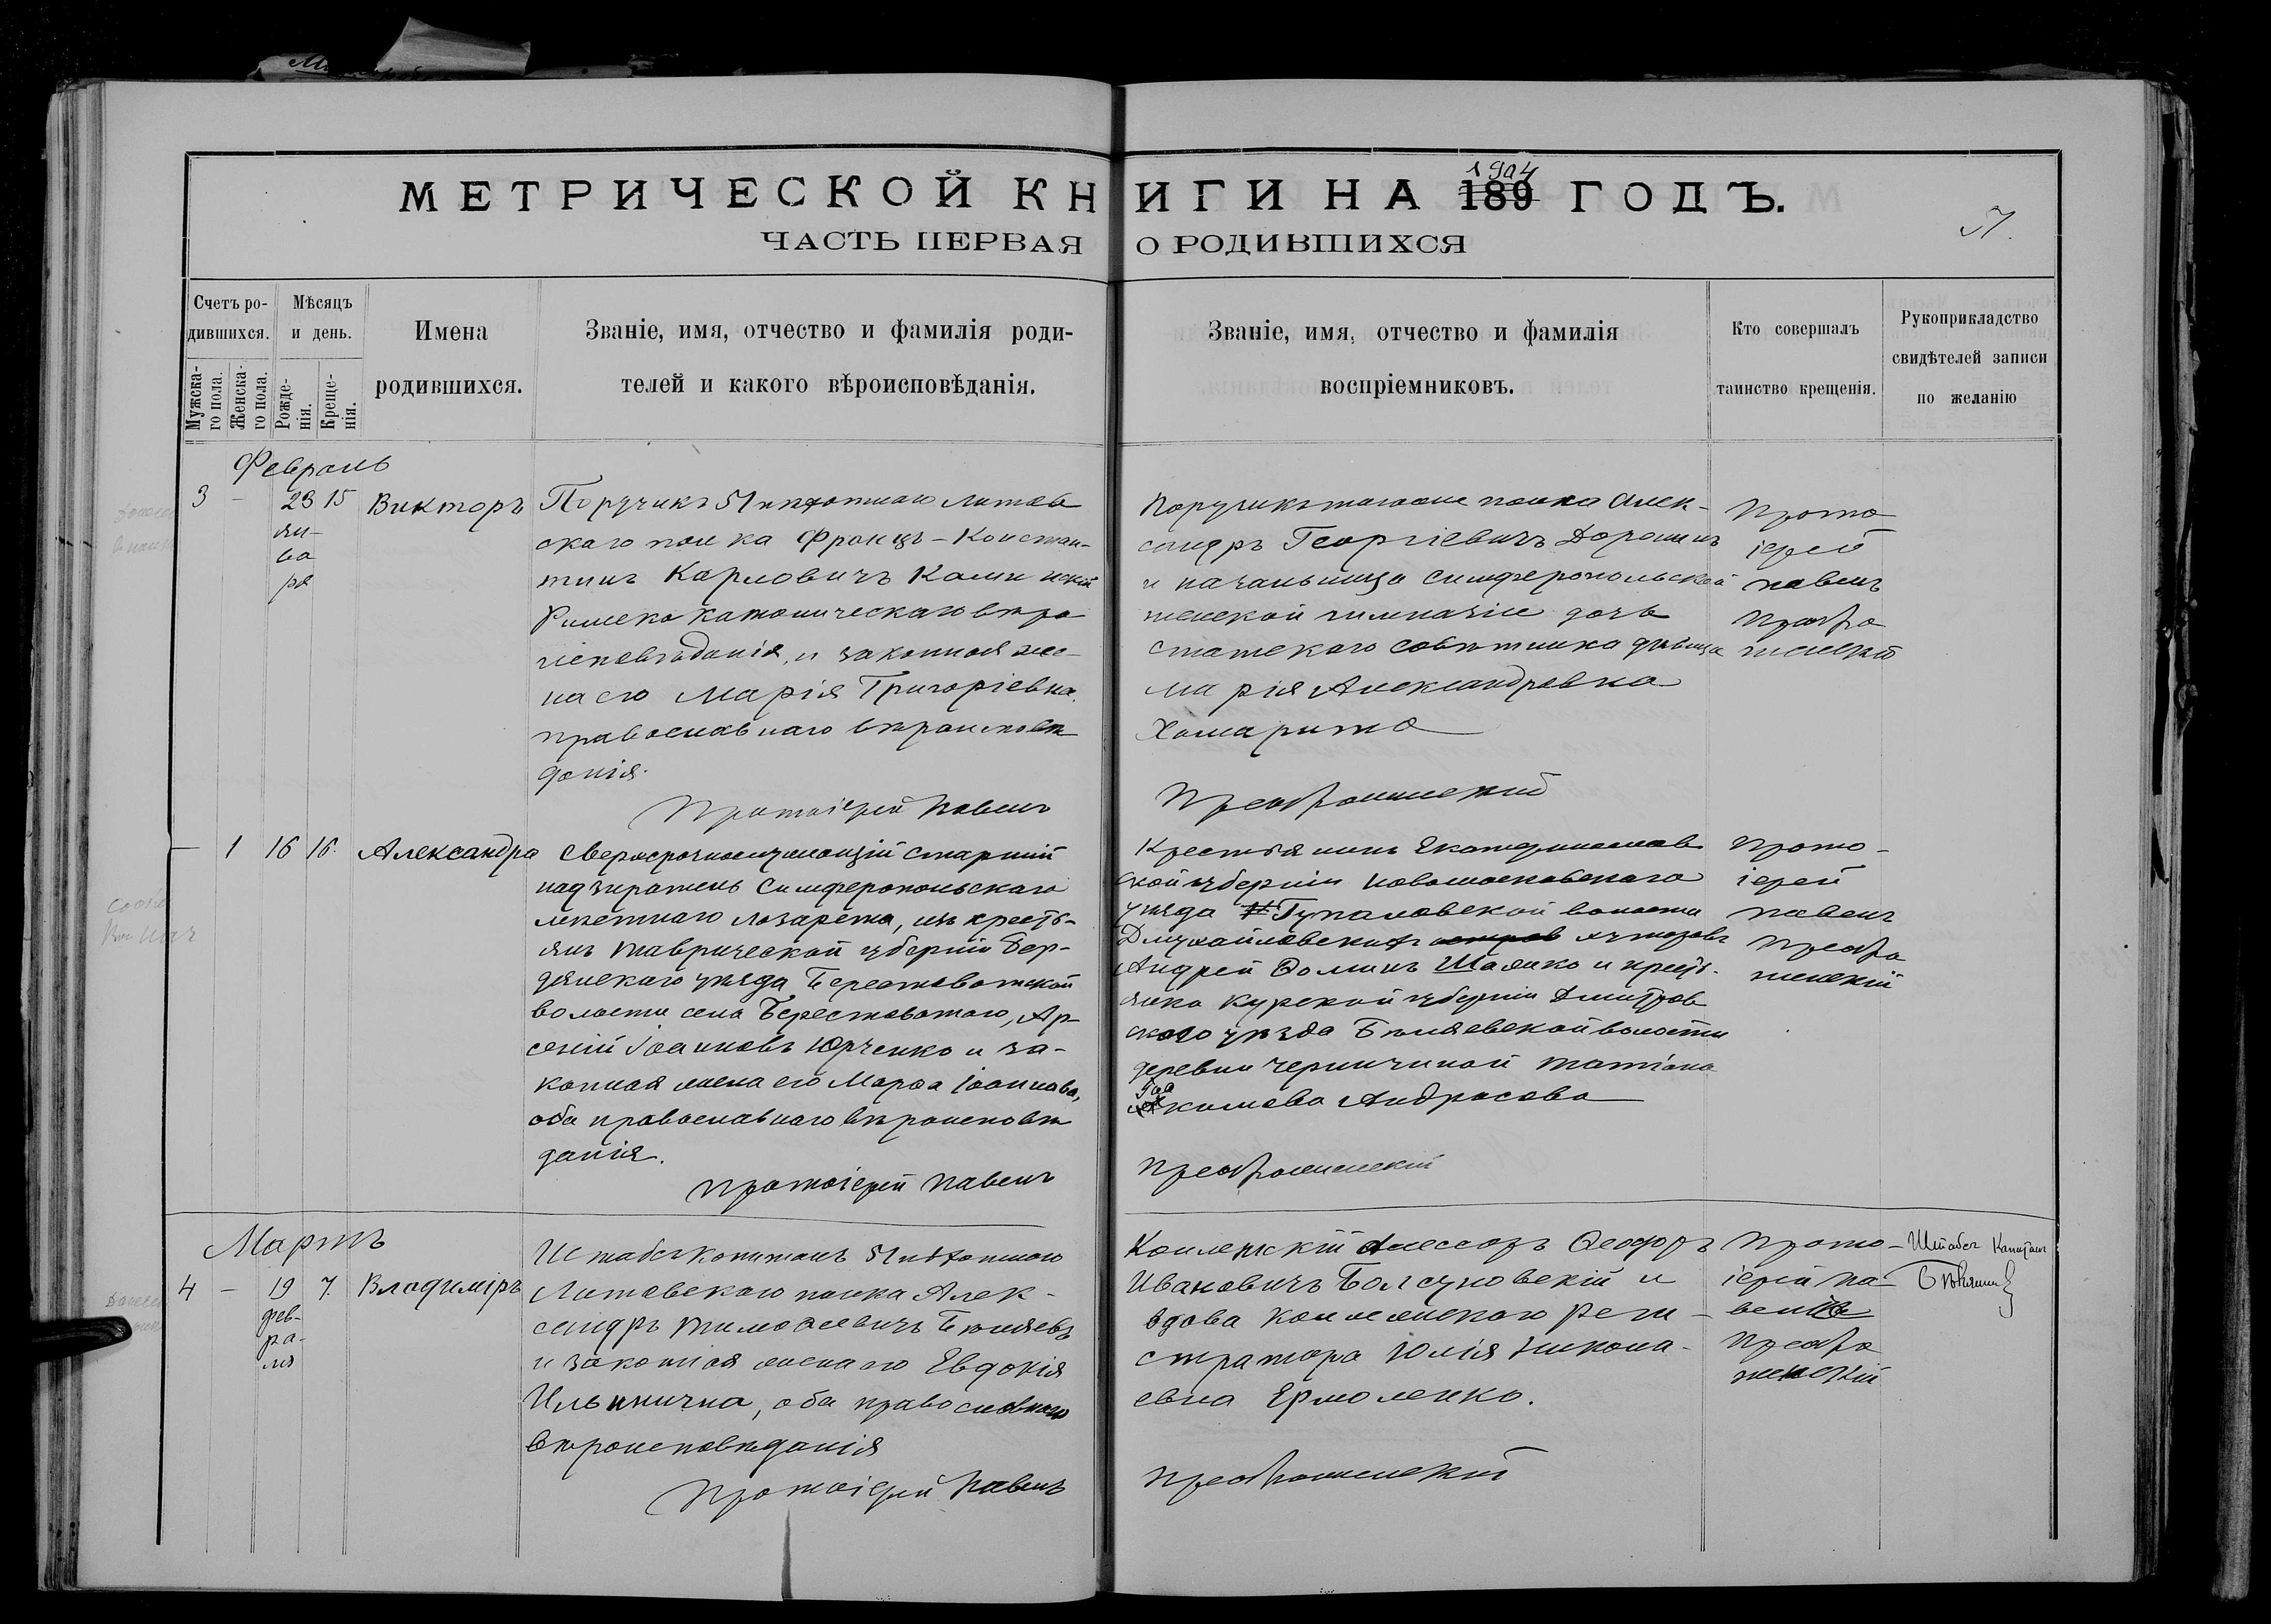 МЕТРИЧЕСКОЙ КНИГИ НА 189 1904 ГОДЪ.
ЧАСТЬ ПЕРВАЯ О РОДИВШИХСЯ
Счетъ ро-
дившихся.
Мужска-
го пола.
Женска-
го пола.
Мѣсяцъ
и день.
Рожде-
нія.
Креще-
нія.
Имена
родившихся.
Званіе, имя, отчество и фамилія роди-
телей и какого вѣроисповѣданія.
Званіе, имя, отчество и фамилія
воспріемниковъ.
Кто совершалъ
таинство крещенія.
Рукоприкладство
свидѣтелей записи
по желанію
Февраль
3 - 23 15 Викторъ
ян-
ва
ря
Поручикъ 51 пѣхотнаго Литов
скаго полка Францъ-Констан-
тинъ Карловичъ
Римско католическаго вѣро
исповѣданія, и законная же-
на его Марія Григоріевна,
православнаго вѣроисповѣ
данія.
Протоіерей Павелъ
Поручикъ тогоже полка Алек-
сандръ Георгіевичъ
и начальница Симферопольской
женской гимназіи дочь
статскаго совѣтника дѣвица
Марія Александровна
Прото
іерей
Павелъ
Преобра
женскій
Преображенскій
- 1 16 16. Александра
Сверхсрочнослужащій старшій
надзиратель Симферопольскаго
мѣстнаго лазарета, изъ кресть-
янъ Таврической губерніи Бер-
дянскаго уѣзда Берестоватской
волости села Берестоватаго, Ар-
сеній Іоанновъ Юрченко и за-
конная жена его Марѳа Іоаннова,
оба православнаго вѣроисповѣ
данія.
Протоіерей Павелъ
Крестьянинъ Екатеринослав
ской губерніи Новомосковскаго
уѣзда волости
хуторовъ
Андрей Ѳоминъ и кресть-
янка Курской губерніи Дмитров
скаго уѣзда волости
деревни Татіана
Андросова
Прото-
іерей
Павелъ
Преобра
женскій
Преображенскій
Мартъ
4 - 19 7. Владиміръ
фев-
ра-
ля
Штабсъ капитанъ 51 пѣхотнаго
Литовскаго полка Алек-
сандръ Тимоѳеевичъ Бѣляевъ
и законная жена его Евдокія
Ильинична, оба православнаго
вѣроисповѣданія
Протоіерей Павелъ
Коллежскій Ассессоръ Ѳеодоръ
Ивановичъ Болсуновскій и
вдова коллежскаго реги-
стратора Юлія Никола-
евна Ермоленко.
Прото-
іерей Па-
велъ
Преобра
женскій
Штабсъ Капитанъ
Преображенскій